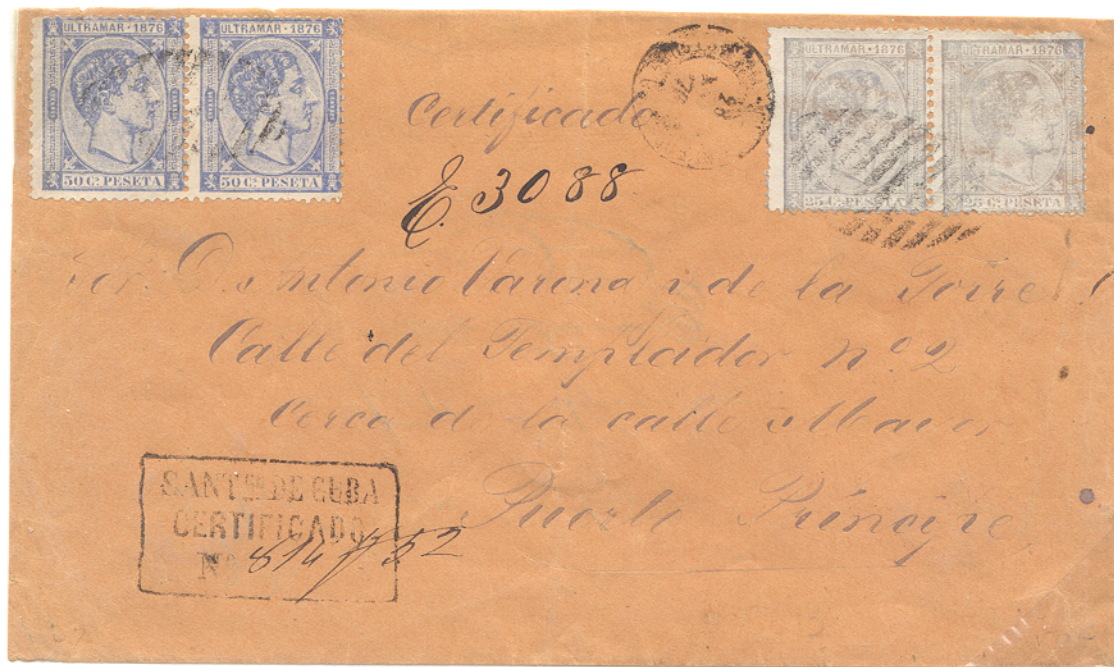 ULTRAMAR · 1876
50 Cs PESETA
ULTRAMAR · 1876
50 Cs PESETA
ULTRAMAR · 1876
25 Cs PESETA
ULTRAMAR · 1876
25 Cs PESETA
Certificado
E. 3088
Sor. D. Antonio Varona y de la Torre
Calle del Templador nº 2
Cerca de la calle Mayor
Puerto Príncipe
SANTGO DE CUBA
CERTIFICADO
No 814 f. 52